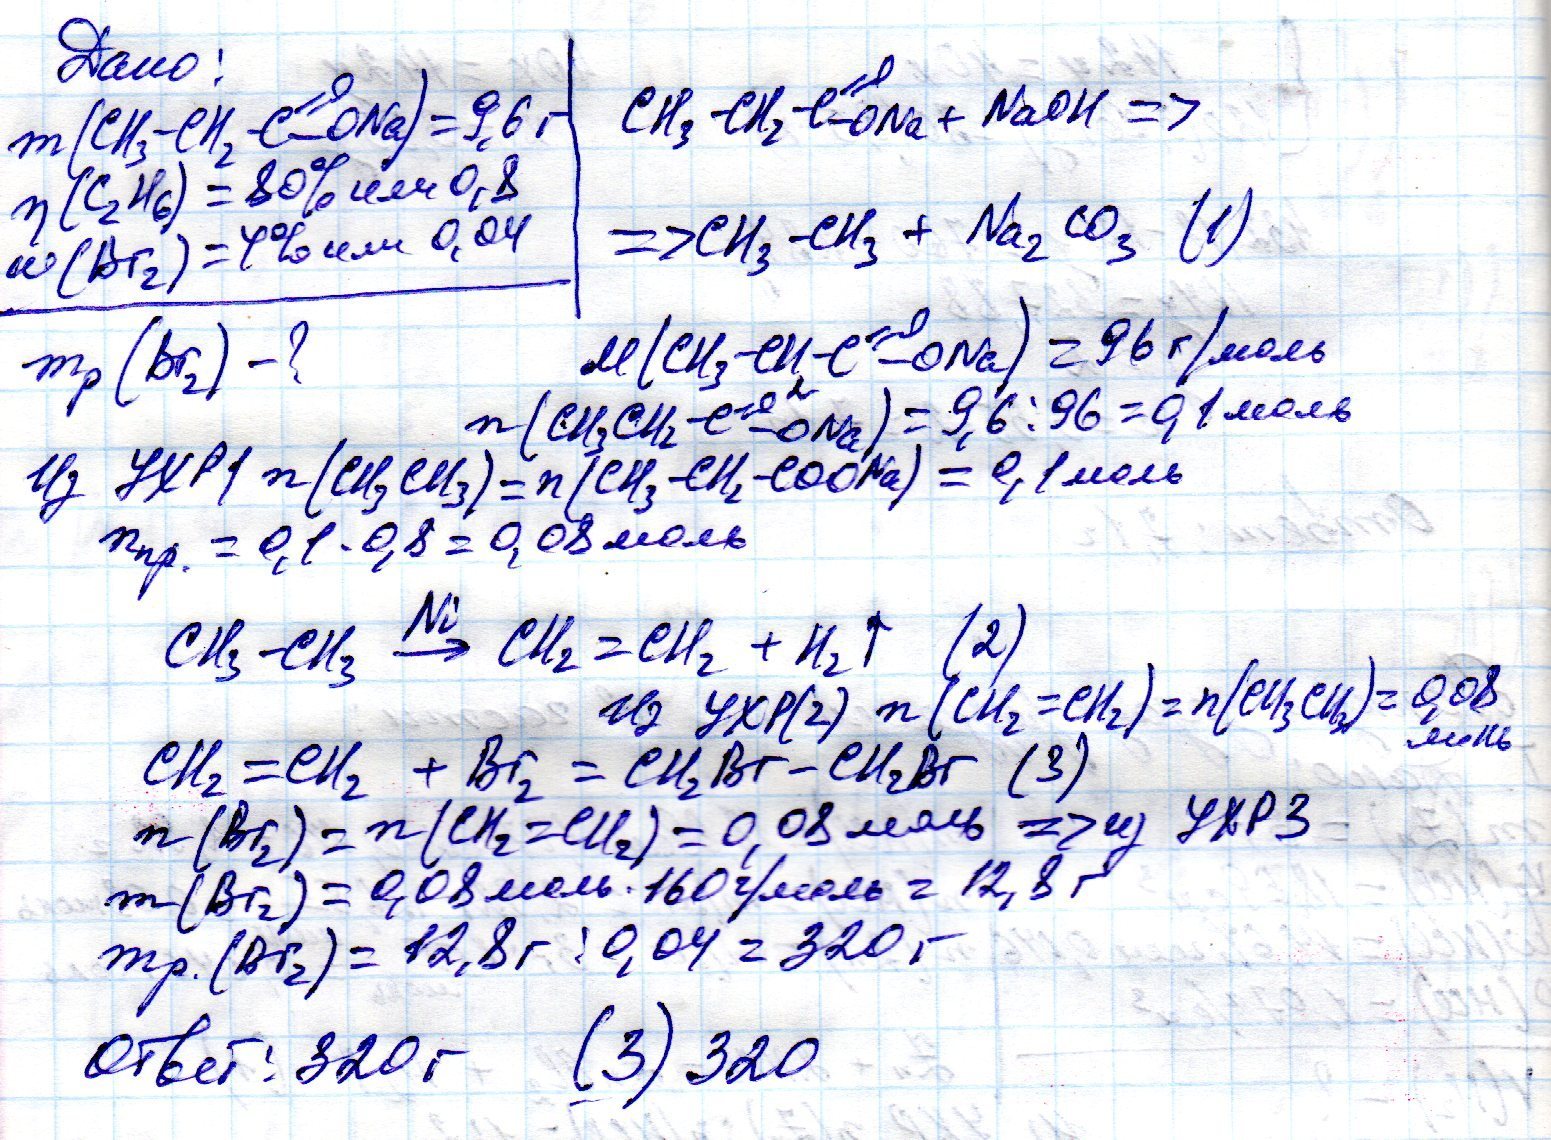 Дано:
m(CH3-CH2-C=O-ONa) = 9,6 г
η(C2H6) = 80% или 0,8
w(Br2) = 4% или 0,04
mр(Br2) - ?
CH3-CH2-C=O-ONa + NaOH =>
=> CH3-CH3 + Na2CO3 (1)
M(CH3-CH2-C=O-ONa) = 96 г/моль
n(CH3CH2-C=O-ONa) = 9,6 : 96 = 0,1 моль
Из УХР1 n(CH3CH3) = n(CH3-CH2-COONa) = 0,1 моль
nпр. = 0,1 · 0,8 = 0,08 моль
CH3-CH3 Ni → CH2=CH2 + H2↑ (2)
Из УХР(2) n(CH2=CH2) = n(CH3CH3) = 0,08 моль
CH2=CH2 + Br2 = CH2Br-CH2Br (3)
n(Br2) = n(CH2=CH2) = 0,08 моль => из УХР3
m(Br2) = 0,08 моль · 160 г/моль = 12,8 г
mр.(Br2) = 12,8 г : 0,04 = 320 г
Ответ: 320 г (3) 320